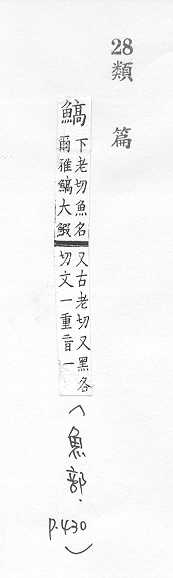 28類篇
鰝
下老切魚名
爾雅鰝大鰕
又古老切又黑各
切文一重音一
（魚部．
p.430）